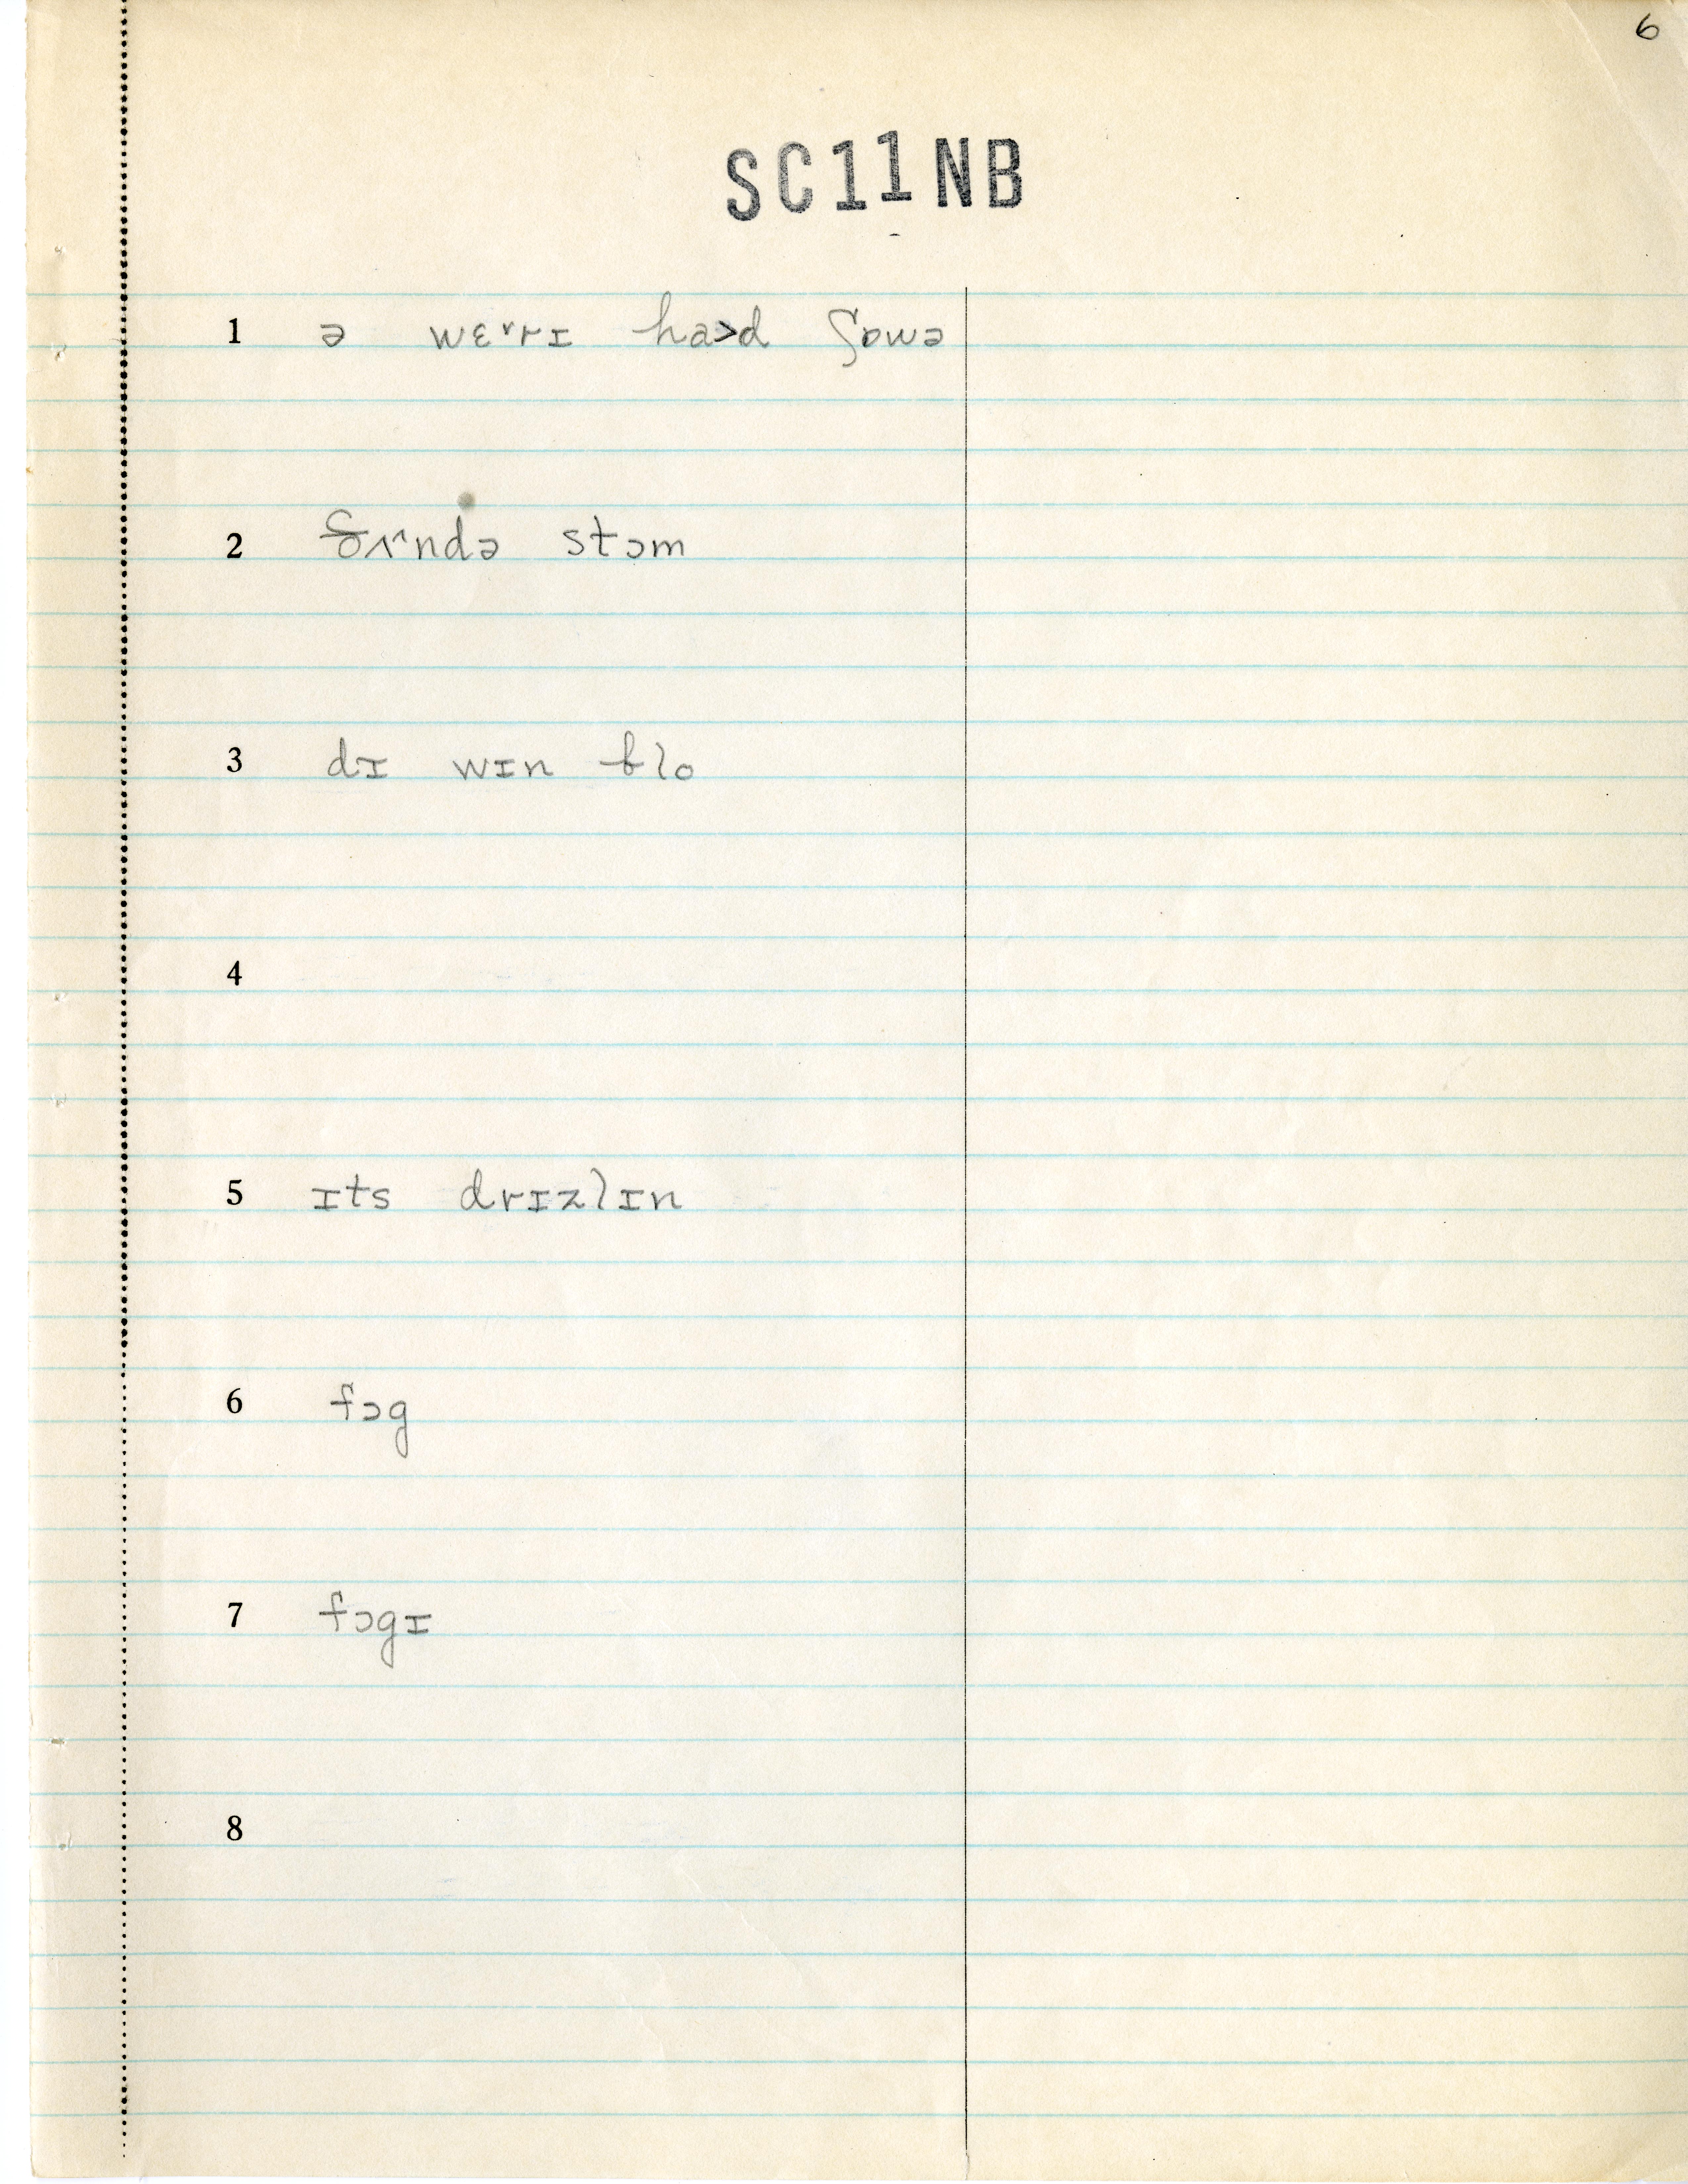 6
SC11NB
1 ə wɛ˅rɪ ha>d ʃɒwə
2 δʌ˄ndə stɔm
3 dɪ wɪn blo
4
5 ɪts drɪzlɪn
6 fɔg
7 fɔgɪ
8